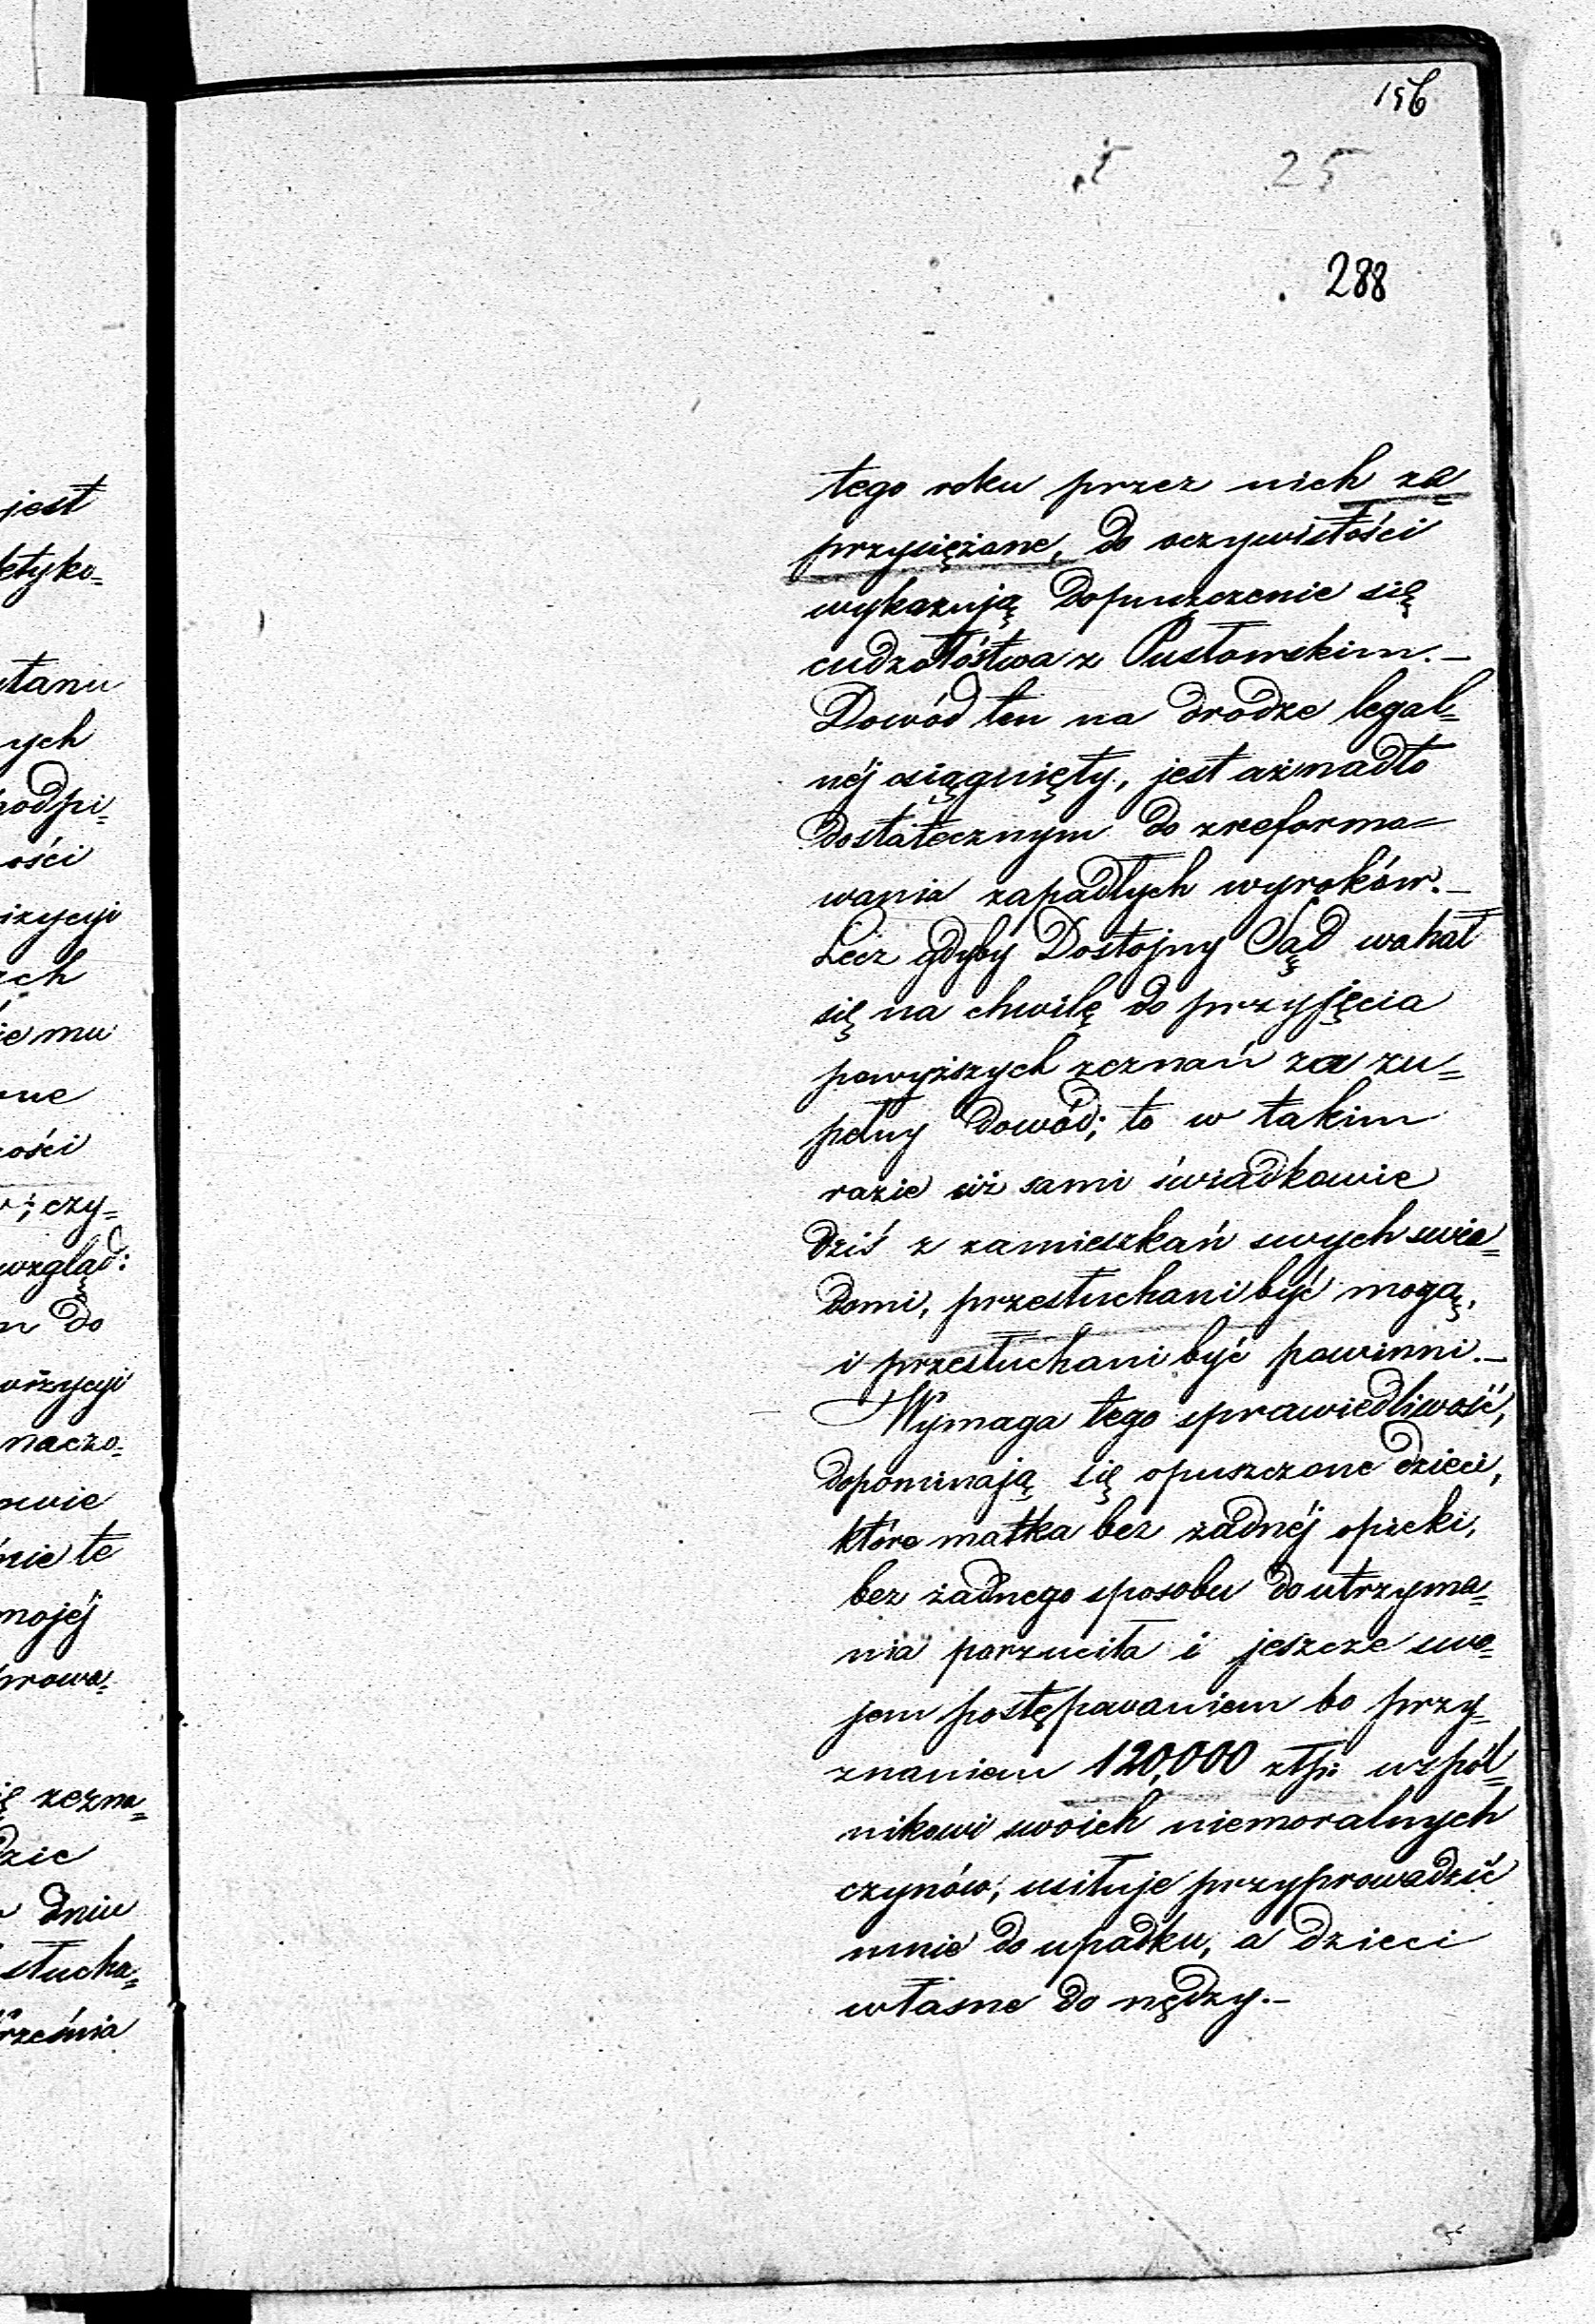 156
25
288
tego roku przez nich za=
przysiężone, do oczywistości
wykazują dopuszczenie się
cudzołóstwa z Pusłowskim.—
Dowód ten na drodze legal=
néj osiągnięty, jest ażnadto
dostatecznym do zreformo=
wania zapadłych wyroków.—
Lecz gdyby Dostojny Sąd wahał
się na chwilę do przyjęcia
powyższych zeznań za zu=
pełny dowód; to w takim
razie ciż sami świadkowie
dziś z zamieszkań swych wia=
domi, przesłuchani być mogą,
i przesłuchani być powinni.—
Wymaga tego sprawiedliwość,
dopominają się opuszczone dzieci,
które matka bez żadnéj opieki,
bez żadnego sposobu do utrzyma=
nia porzuciła i jeszcze swo=
jem postępowaniem bo przy=
znaniem 120,000 złp: wspól=
nikowi swoich niemoralnych
czynów, usiłuje przyprowadzić
mnie do upadku, a dzieci
własne do nędzy.—
jest
ktyko=
stanu
ych
podpi=
ości
izycyi
ch
ie mu
one
ości
; czy=
wzgląd:
do
wizycyi
naczo=
owie
nie te
mojéj
prowa=
zezna=
dzie
dniu
słucha=
rześnia